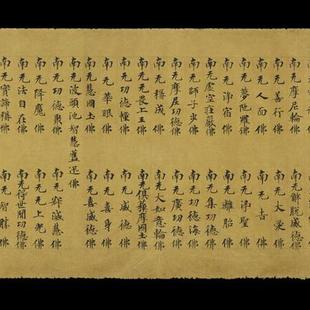 南无摩尼輪佛
南无解脱威德佛
南无善行佛
南无大愛佛
南无人面佛
南无吉佛
南无夢耀佛
南无淨聖佛
南无淨宿佛
南无離胎佛
南无虚空莊嚴佛
南无集功德佛
南无師子步佛
南无功德海佛
南无摩尼功德佛
南无廣功德佛
南无稱成佛
南无大如意輪佛
南无无畏上王佛
南无俱穌摩國土佛
南无功德幢佛
南无威德佛
南无華眼佛
南无喜身佛
南无慧國土佛
南无喜威德佛
南无波頭池智慧蓋迅佛
南无功德聚佛
南无滅慧佛
南无降魔佛
南无上兜佛
南无法自在佛
南无世間功德佛
南无實諦稱佛
南无智勝佛